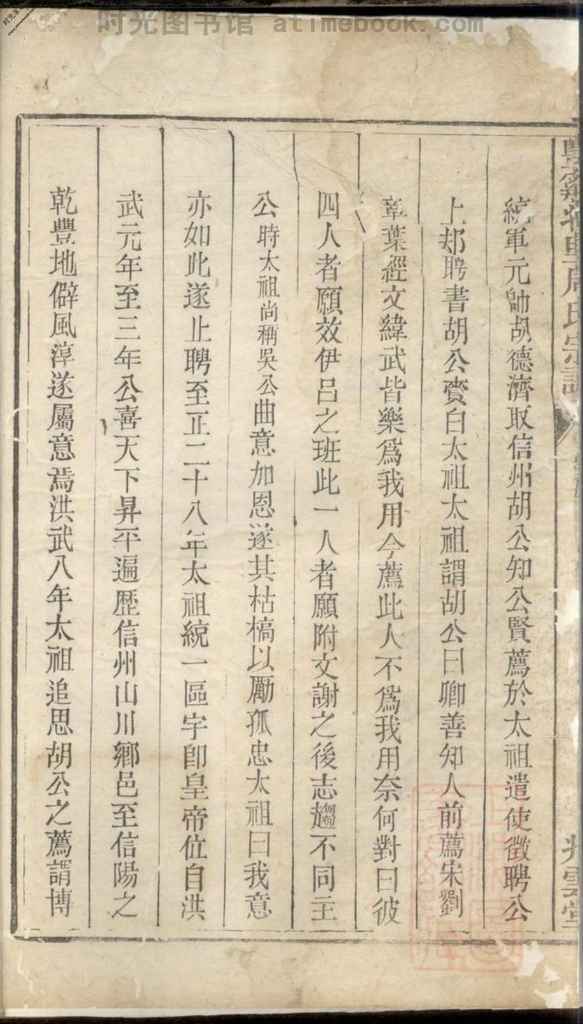 时光图书馆 atimebook.com
周氏宗譜
統軍元帥胡德濟取信州胡公知公賢薦於太祖遣使徵聘公
上却聘書胡公賫白太祖太祖謂胡公曰卿善知人前薦宋劉
章葉經文緯武皆樂爲我用今薦此人不爲我用奈何對曰彼
四人者願效伊呂之班此一人者願附文謝之後志趨不同主
公時太祖尚稱吳公曲意加恩遂其枯槁以勵孤忠太祖曰我意
亦如此遂止聘至正二十八年太祖統一區宇卽皇帝位自洪
武元年至三年公喜天下昇平遍歷信州山川鄉邑至信陽之
乾豐地僻風淳遂屬意焉洪武八年太祖追思胡公之薦謂博